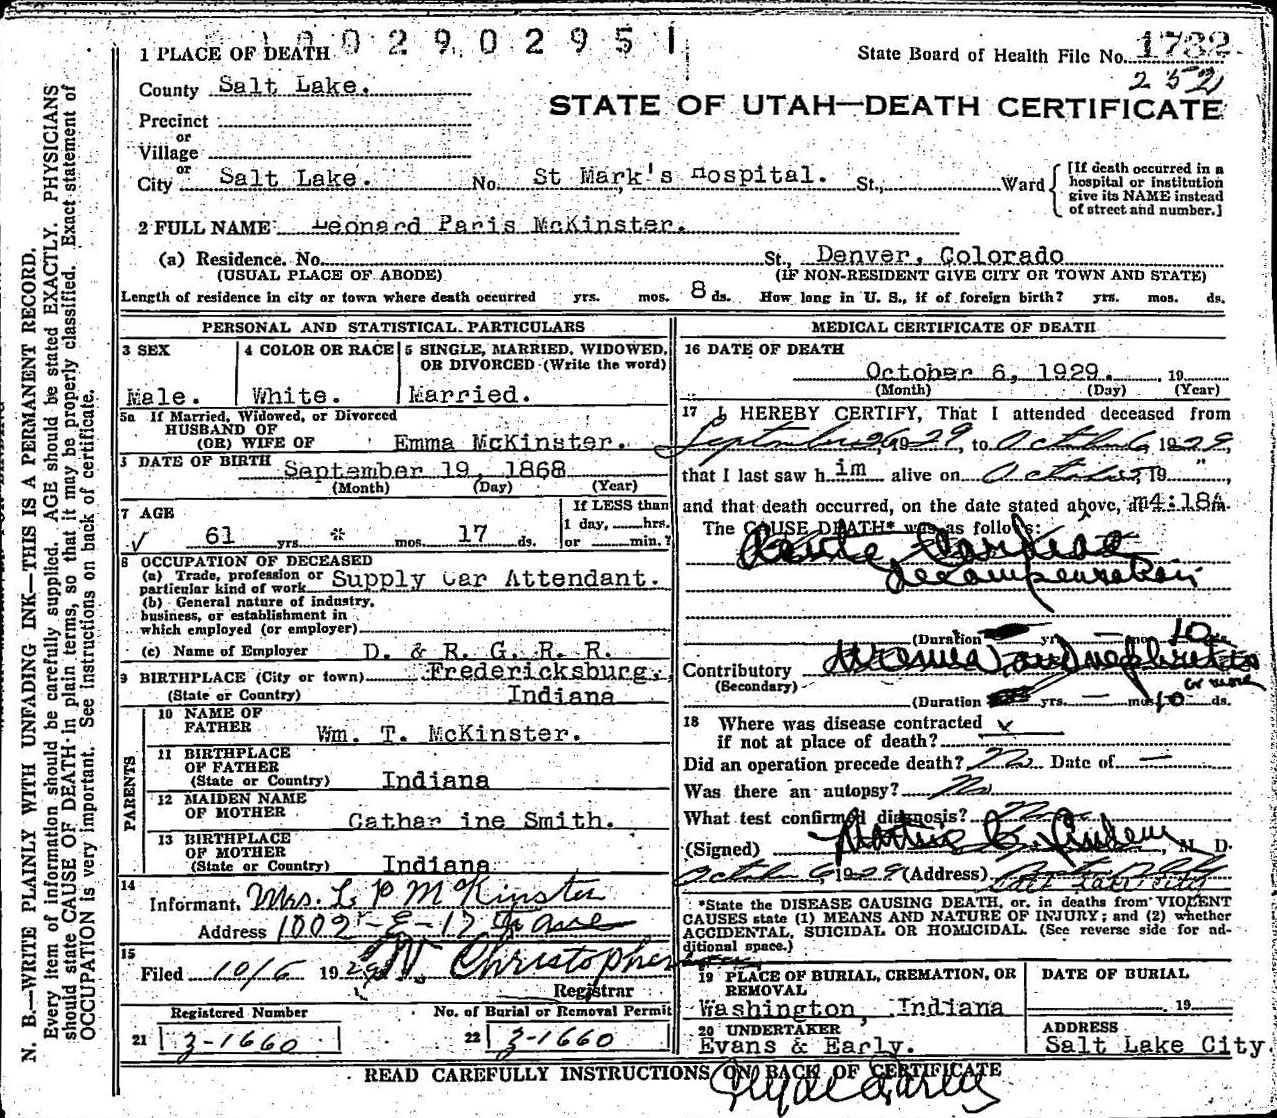 1 0 0 2 9 0 2 9 5 1
1 PLACE OF DEATH
State Board of Health File No. 1782
252
County Salt Lake.
STATE OF UTAH—DEATH CERTIFICATE
Precinct
or
Village
or
City Salt Lake. No. St Mark's Hospital. St., Ward
[If death occurred in a hospital or institution give its NAME instead of street and number.]
2 FULL NAME Leonard Paris McKinster.
(a) Residence. No. St., Denver, Colorado
(USUAL PLACE OF ABODE) (IF NON-RESIDENT GIVE CITY OR TOWN AND STATE)
Length of residence in city or town where death occurred yrs. mos. 8 ds. How long in U. S., if of foreign birth? yrs. mos. ds.
PERSONAL AND STATISTICAL PARTICULARS
3 SEX
Male.
4 COLOR OR RACE
White.
5 SINGLE, MARRIED, WIDOWED,
OR DIVORCED (Write the word)
Married.
5a If Married, Widowed, or Divorced
HUSBAND OF
(OR) WIFE OF Emma McKinster.
DATE OF BIRTH September 19, 1868
(Month) (Day) (Year)
7 AGE
61 yrs. * mos. 17 ds.
If LESS than
1 day, hrs.
or min.?
8 OCCUPATION OF DECEASED
(a) Trade, profession or
particular kind of work Supply Car Attendant.
(b) General nature of industry,
business, or establishment in
which employed (or employer)
(c) Name of Employer D. & R. G. R. R.
9 BIRTHPLACE (City or town) Fredericksburg,
(State or Country) Indiana
PARENTS
10 NAME OF
FATHER Wm. T. McKinster.
11 BIRTHPLACE
OF FATHER
(State or Country) Indiana
12 MAIDEN NAME
OF MOTHER Cathar ine Smith.
13 BIRTHPLACE
OF MOTHER
(State or Country) Indiana
14
Informant, Mrs. L P McKinster
Address 1002-E-17 Ave
15
Filed 10/6 1929 Christopher
Registrar
Registered Number No. of Burial or Removal Permit
21 3-1660 22 3-1660
MEDICAL CERTIFICATE OF DEATH
16 DATE OF DEATH
October 6, 1929. 19
(Month) (Day) (Year)
17 I HEREBY CERTIFY, That I attended deceased from
September 26, 1929, to October 6, 1929,
that I last saw him alive on October, 19 ",
and that death occurred, on the date stated above, at 4:18A m.
The CAUSE DEATH* was as follows:
Acute Cardiac
Decompensation
(Duration yrs. — mos. 10 ds.
Contributory Uremia and nephritis
(Secondary) or more
(Duration yrs. — mos. 10 ds.
18 Where was disease contracted
if not at place of death?
Did an operation precede death? No Date of —
Was there an autopsy? No
What test confirmed diagnosis?
(Signed) M. D.
Octob 6, 1929 (Address)
Salt Lake City
*State the DISEASE CAUSING DEATH, or, in deaths from VIOLENT
CAUSES state (1) MEANS AND NATURE OF INJURY; and (2) whether
ACCIDENTAL, SUICIDAL OR HOMICIDAL. (See reverse side for ad-
ditional space.)
19 PLACE OF BURIAL, CREMATION, OR
REMOVAL
Washington, Indiana
DATE OF BURIAL
19
20 UNDERTAKER
Evans & Early.
ADDRESS
Salt Lake City.
READ CAREFULLY INSTRUCTIONS ON BACK OF CERTIFICATE
Clyde Early
N. B.—WRITE PLAINLY WITH UNFADING INK—THIS IS A PERMANENT RECORD.
Every item of information should be carefully supplied. AGE should be stated EXACTLY. PHYSICIANS
should state CAUSE OF DEATH in plain terms, so that it may be properly classified. Exact statement of
OCCUPATION is very important. See instructions on back of certificate.